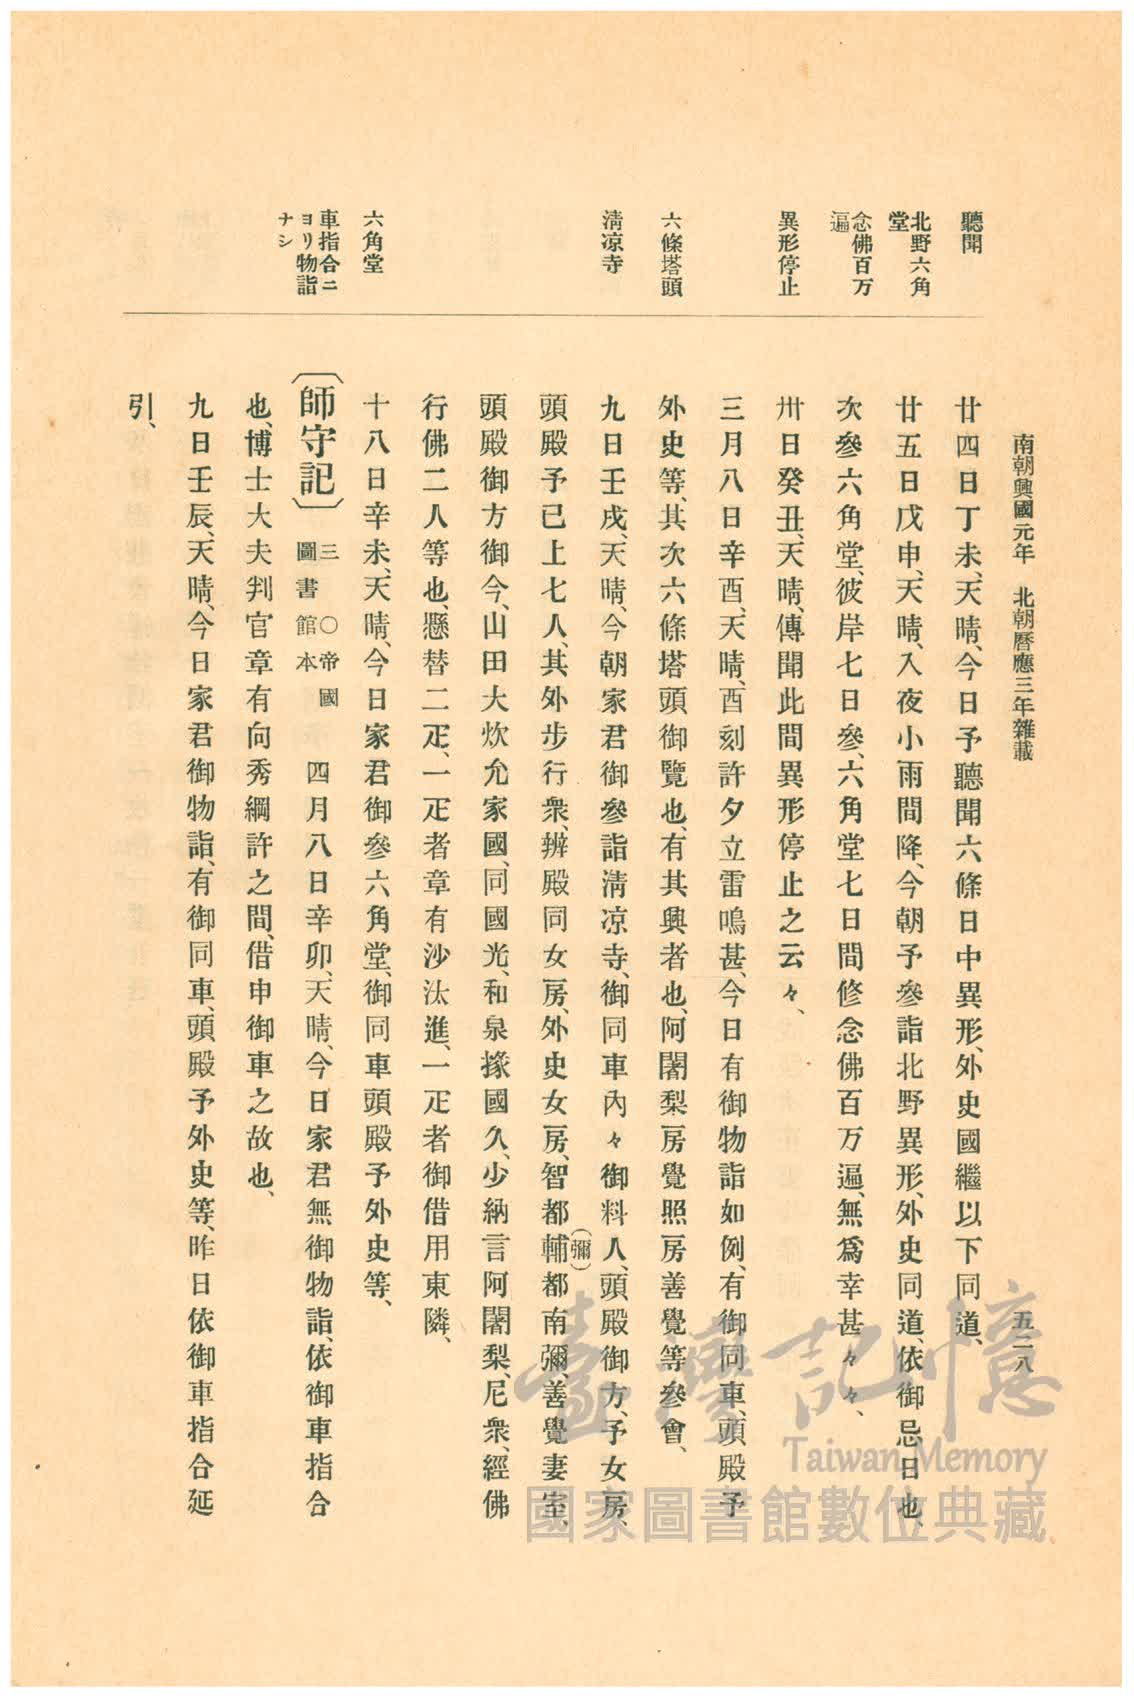 南朝興國元年 北朝曆應三年雜載 五二八
聽聞
北野六角
堂
念佛百万
遍
異形停止
六條塔頭
淸凉寺
六角堂
車指合ニ
ヨリ物詣
ナシ
廿四日丁未、天晴、今日予聽聞六條日中異形、外史國繼以下同道、
廿五日戊申、天晴、入夜小雨間降、今朝予參詣北野異形、外史同道、依御忌日也、
次參六角堂、彼岸七日參、六角堂七日間修念佛百万遍、無爲幸甚々々、
卅日癸丑、天晴、傳聞此間異形停止之云々、
三月八日辛酉、天晴、酉刻許夕立雷鳴甚、今日有御物詣如例、有御同車、頭殿予
外史等、其次六條塔頭御覽也、有其興者也、阿闍梨房覺照房善覺等參會、
九日壬戌、天晴、今朝家君御參詣淸凉寺、御同車內々御料人、頭殿御方、予女房、
頭殿予已上七人、其外步行衆、辨殿同女房、外史女房、智都輔都南彌、善覺妻室、
（彌）
頭殿御方御今、山田大炊允家國、同國光、和泉掾國久、少納言阿闍梨、尼衆、經佛
行佛二人等也、懸替二疋、一疋者章有沙汰進、一疋者御借用東隣、
十八日辛未、天晴、今日家君御參六角堂、御同車頭殿予外史等、
〔師守記〕 三 〇帝國
圖書館本 四月八日辛卯、天晴、今日家君無御物詣、依御車指合
也、博士大夫判官章有向秀綱許之間、借申御車之故也、
九日壬辰、天晴、今日家君御物詣、有御同車、頭殿予外史等、昨日依御車指合延
引、
臺灣記憶
Taiwan Memory
國家圖書館數位典藏